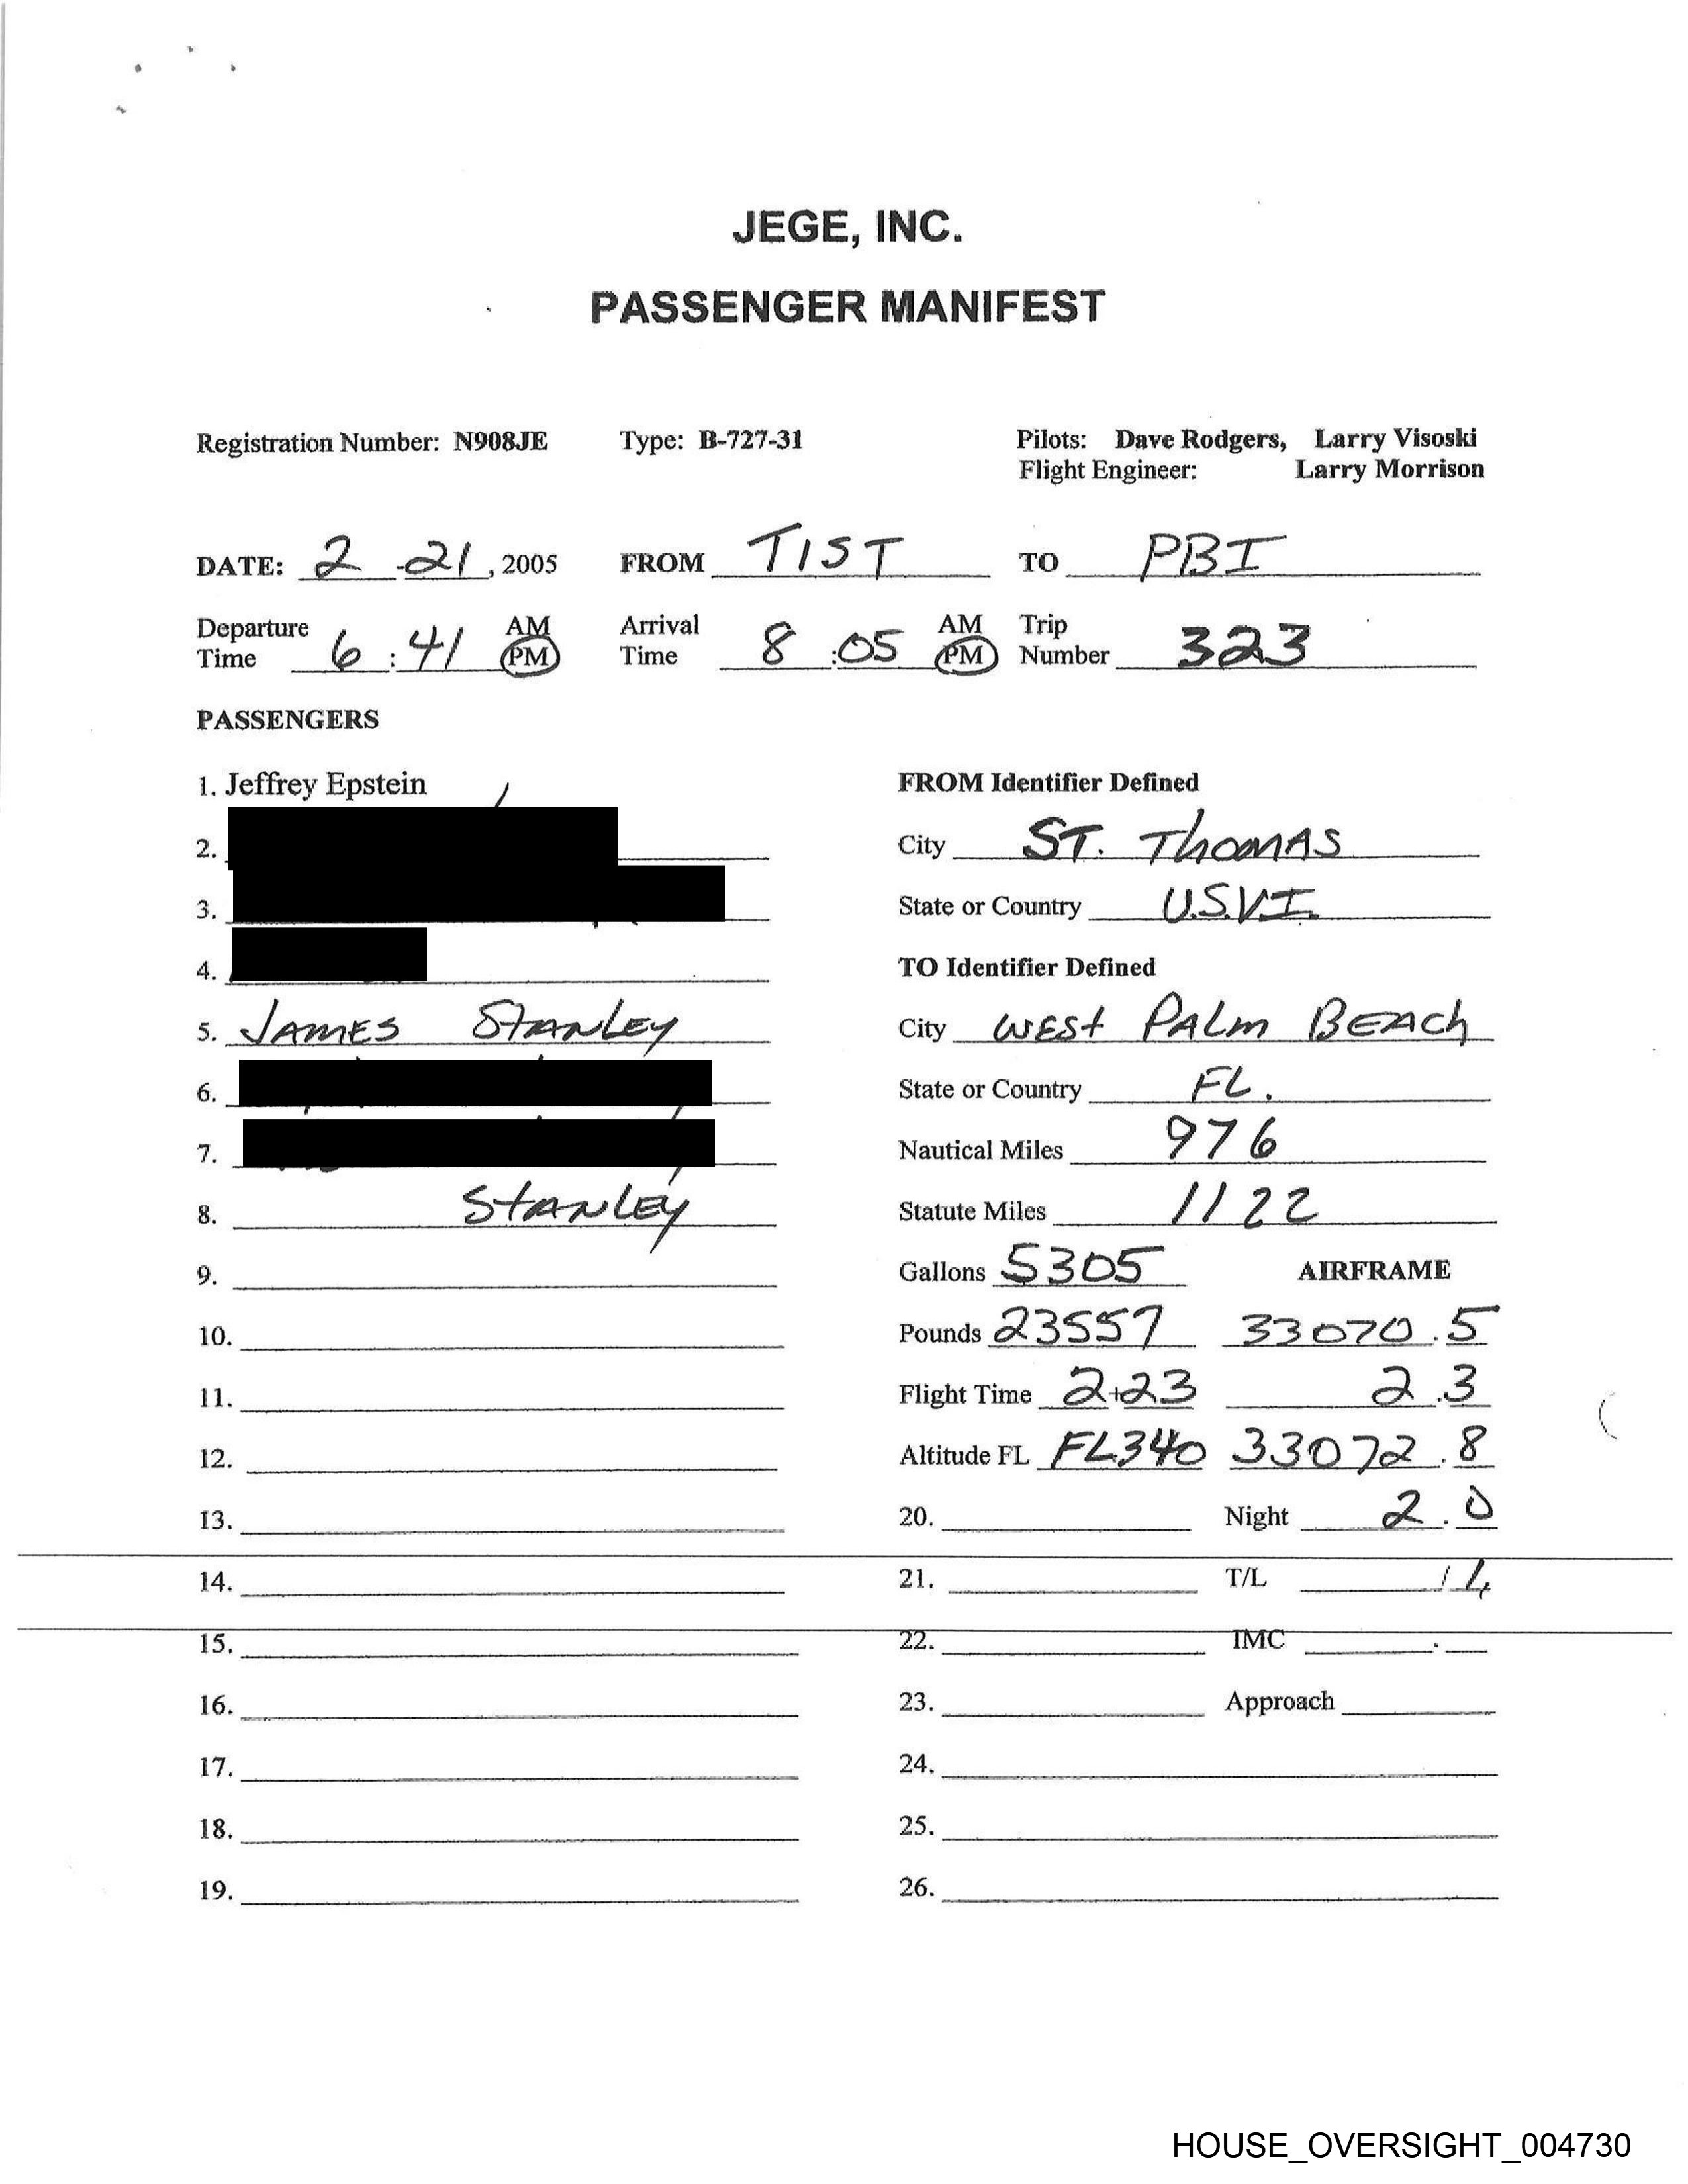 JEGE, INC.
PASSENGER MANIFEST
Registration Number: N908JE Type: B-727-31 Pilots: Dave Rodgers, Larry Visoski
Flight Engineer: Larry Morrison
DATE: 2 -21, 2005 FROM TIST TO PBI
Departure Time 6:41 AM PM Arrival Time 8:05 AM PM Trip Number 323
PASSENGERS
1. Jeffrey Epstein
2.
3.
4.
5. JAMES STANLEY
6.
7.
8. STANLEY
9.
10.
11.
12.
13.
14.
15.
16.
17.
18.
19.
FROM Identifier Defined
City ST. THOMAS
State or Country U.S.V.I.
TO Identifier Defined
City WEST PALM BEACH
State or Country FL.
Nautical Miles 976
Statute Miles 1122
Gallons 5305 AIRFRAME
Pounds 23557 33070.5
Flight Time 2+23 2.3
Altitude FL FL340 33072.8
20. Night 2.0
21. T/L
22. IMC .
23. Approach
24.
25.
26.
HOUSE_OVERSIGHT_004730